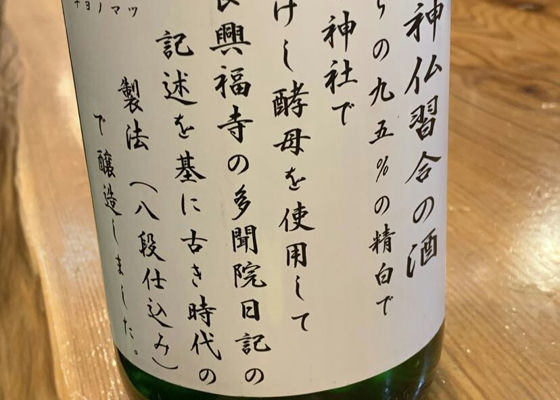 神仏習合の酒
の九五%の精白で
神社で
けし酵母を使用して
興福寺の多聞院日記の
記述を基に古き時代の
製法（八段仕込み）
で醸造しました。
キヨノマツ